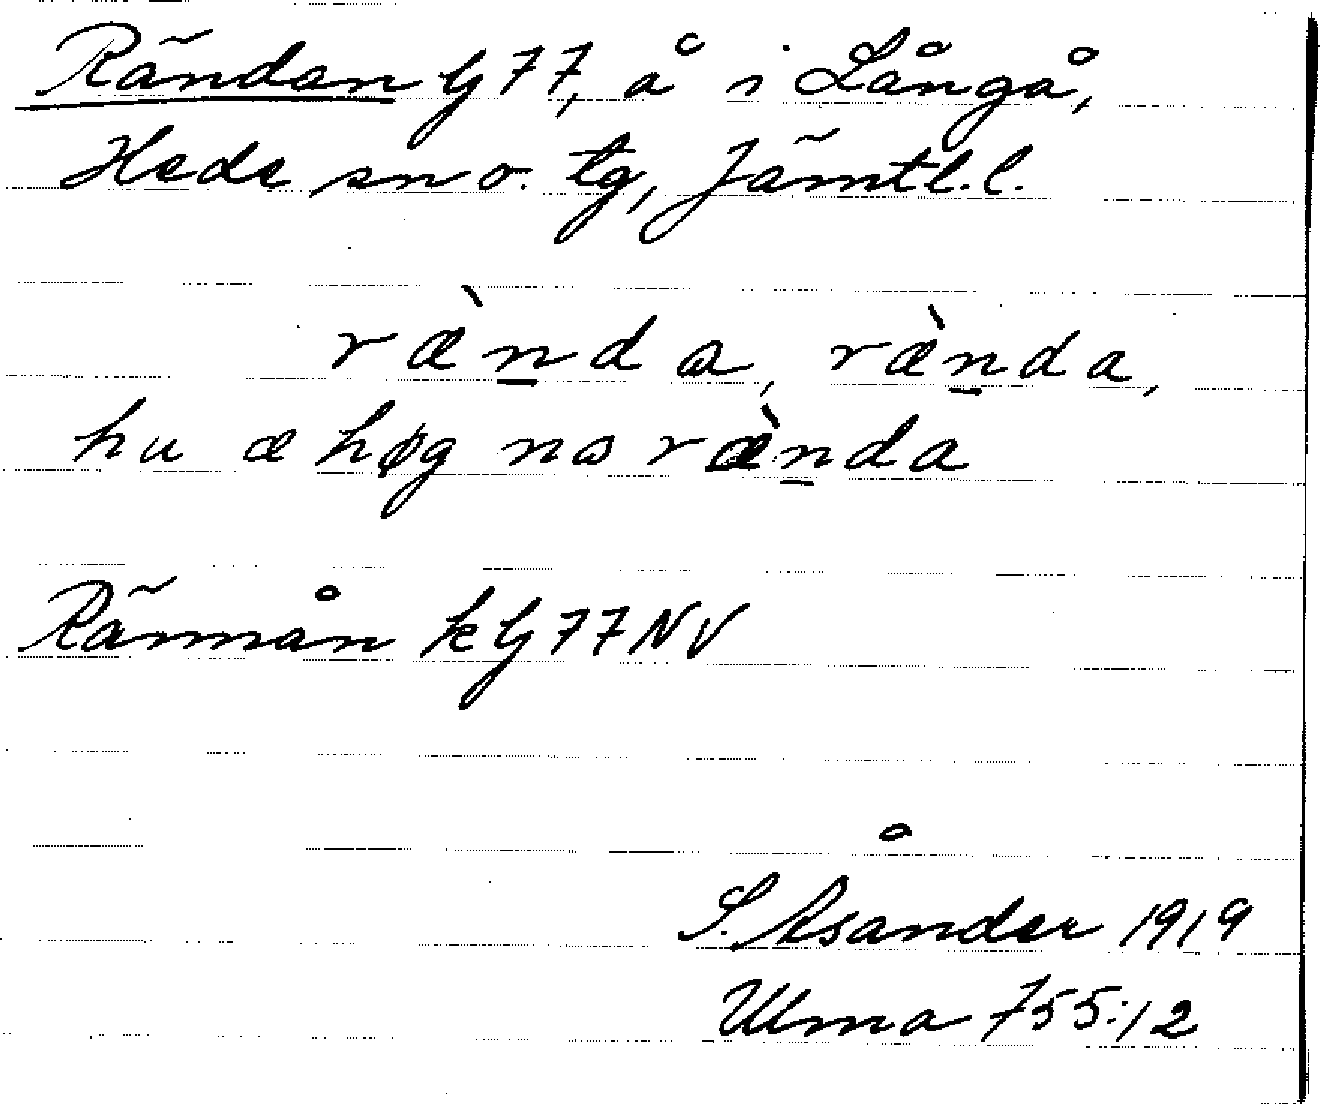 Rändan G 77, å i Långå,
Hede sn o. tg, Jämtl.l.
ræ̀n̲da, ræ̀n̲da,
hu æ høg na ræ̀n̲da
Rännån kG 77 NV
S. Åsander 1919
Ulma 755:12